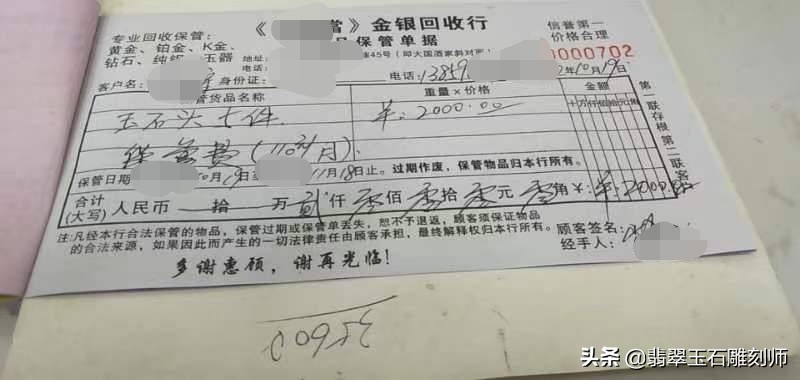 专业回收保管:
黄金、铂金、K金、
钻石、纯银、玉器
《 當》金银回收行
品保管单据
信誉第一
价格合理
地址: 45号(即大国酒家斜对面)
电话:
0000702
客户名: 身份证: 电话:13859 2年10月19日
管货品名称 重量×价格 金额
十万仟佰拾元角
玉石头七件 羊:2000.00
保管费(110元/月)
保管日期 10月19 至 11月18日止。过期作废,保管物品归本行所有。
合计(大写) 人民币 拾 万 贰仟 零佰 零拾 零元 零角 ¥:羊:2000.
注:凡经本行合法保管的物品,保管过期或保管单丢失,恕不予退返,顾客须保证物品
的合法来源,如果因此而产生的一切法律责任由顾客承担,最终解释权归本行所有。
顾客签名:
经手人:
多谢惠顾,谢再光临!
第一联存根 第二联客
3560
头条 @翡翠玉石雕刻师